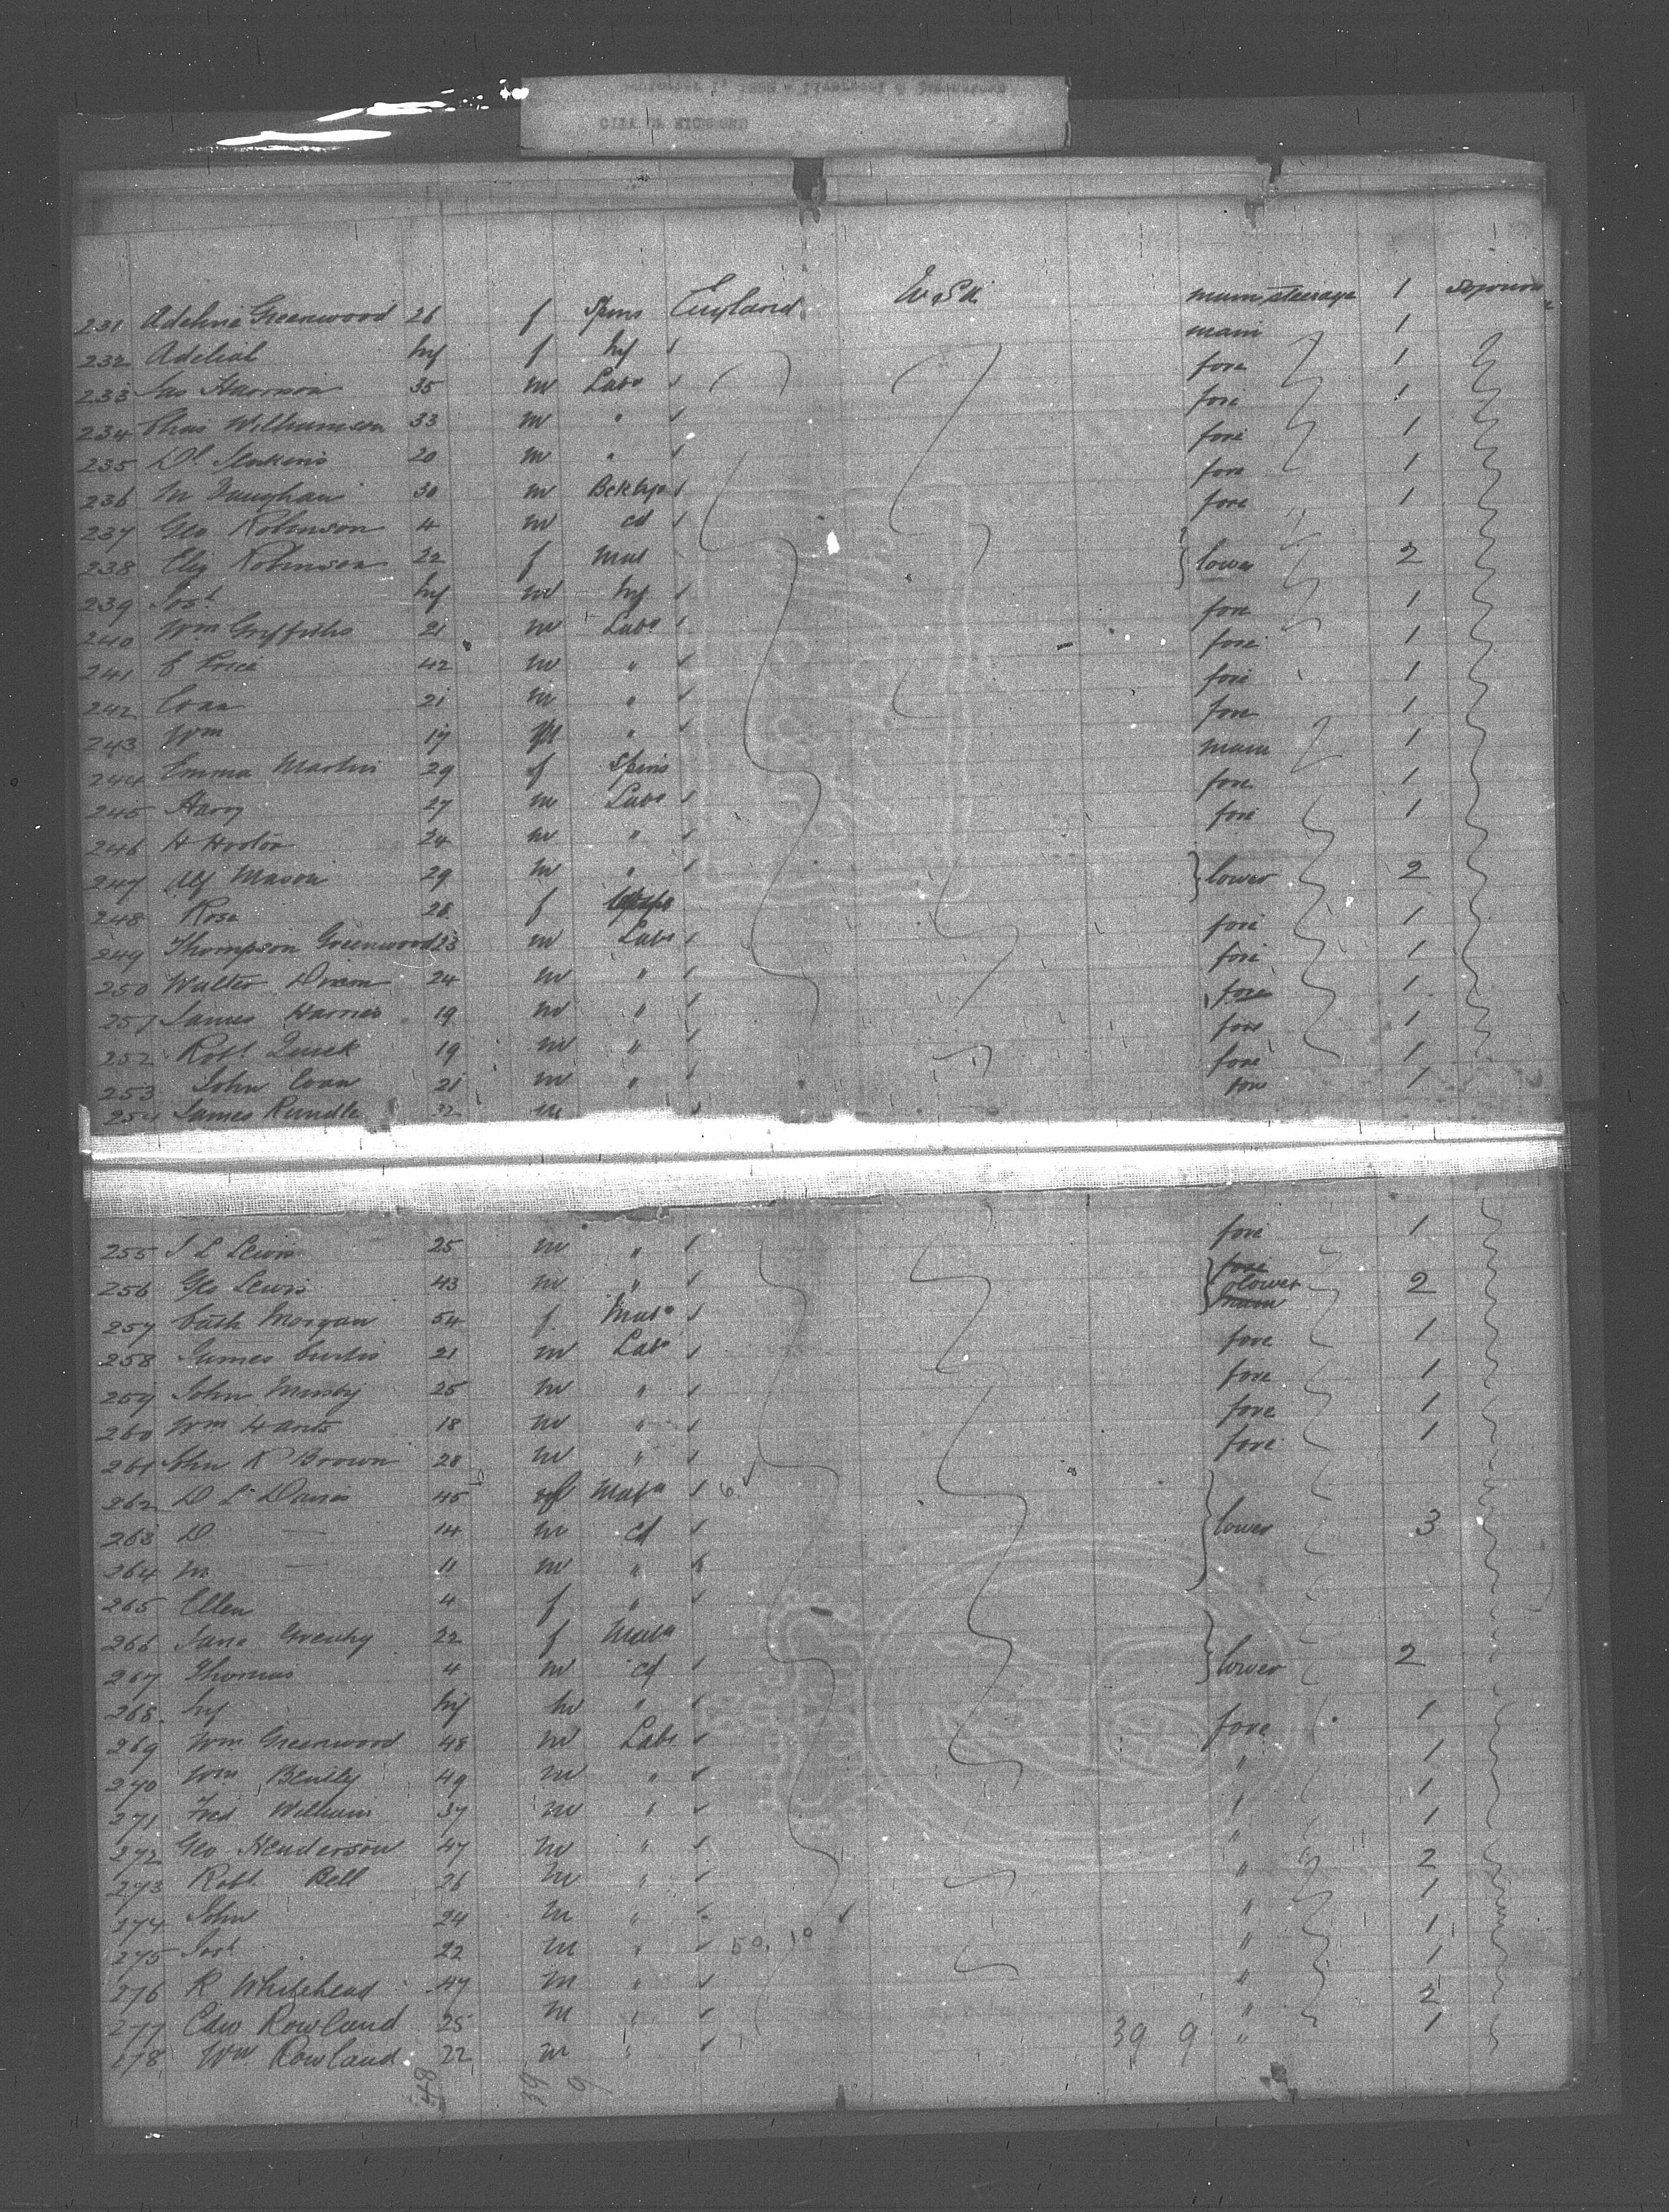 CITY OF RICHMOND
231 Adeline Greenwood 26 f Spins England U.S.A. main steerage 1 Sojourn
232 Adelial inf f inf main 1
233 Jas Harrison 35 m Labr fore 1
234 Chas Williamson 33 m " fore 1
235 Dl Jenkins 20 m " fore 1
236 M Vaughan 30 m fore 1
237 Geo Robinson 4 m cd fore 1
238 Eliz Robinson 22 f Mat lower 2
239 Josh inf m inf
240 Wm Griffiths 21 m Labr fore 1
241 E Price 42 m " fore 1
242 Evan 21 m " fore 1
243 Wm 19 m " fore 1
244 Emma Martin 29 f Spins main 1
245 Harry 27 m Labr fore 1
246 H Hooton 24 m " fore 1
247 Alf Mason 29 m " lower 2
248 Rose 28 f
249 Thompson Greenwood 23 m Labr fore 1
250 Walter Dixon 24 m " fore 1
251 James Harries 19 m " fore 1
252 Robt Quick 19 m " fore 1
253 John Evan 21 m " fore 1
254 James Rundle 32 m fore 1
255 J L Lewis 25 m " fore 1
256 Geo Lewis 43 m " fore lower main 2
257 Cath Morgan 54 f Matn
258 James Curtis 21 m Labr fore 1
259 John 25 m " fore 1
260 Wm 18 m " fore 1
261 John R Brown 28 m " fore 1
262 D L Davis 45 f Matn 6 lower 3
263 D — 14 m cd
264 M — 11 m "
265 Ellen 4 f "
266 Jane 22 f Matn lower 2
267 Thomas 4 m cd
268 inf inf m "
269 Wm Greenwood 48 m Labr fore 1
270 Wm Bentley 49 m " " 1
271 Fred Williams 37 m " " 1
272 Geo Henderson 47 m " " 1
273 Robt Bell 26 m " " 2
274 John 24 m " " 1
275 Josh 22 m " 50 10 " 1
276 R Whitehead 47 m " " 1
277 Edw Rowland 25 m " " 2
278 Wm Rowland 22 m " 39 9 " 1
48 39 9